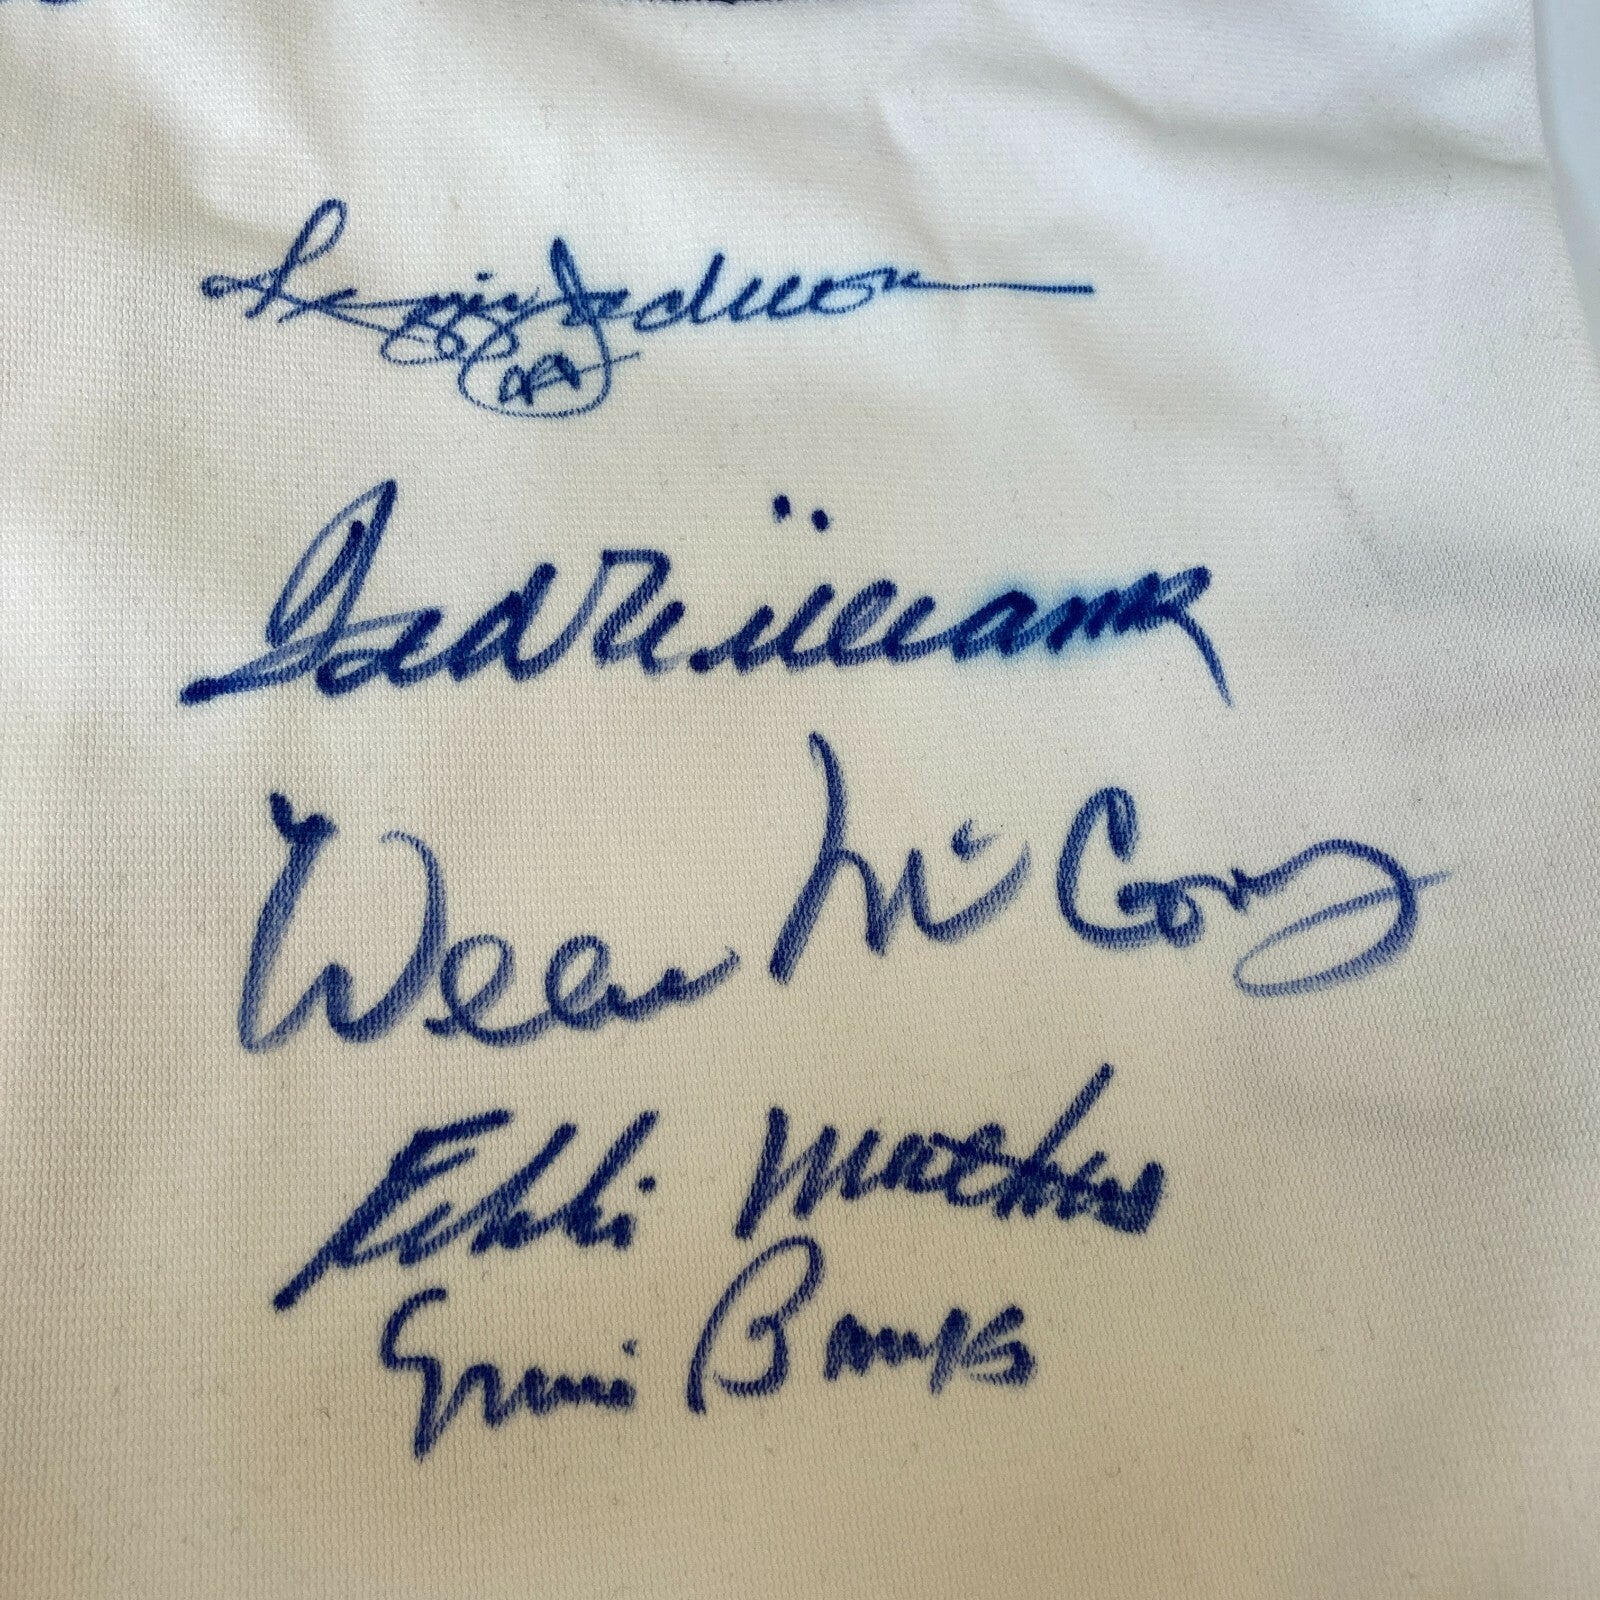 Reggie Jackson
Ted Williams
Willie McCovey
Eddie Mathews
Ernie Banks